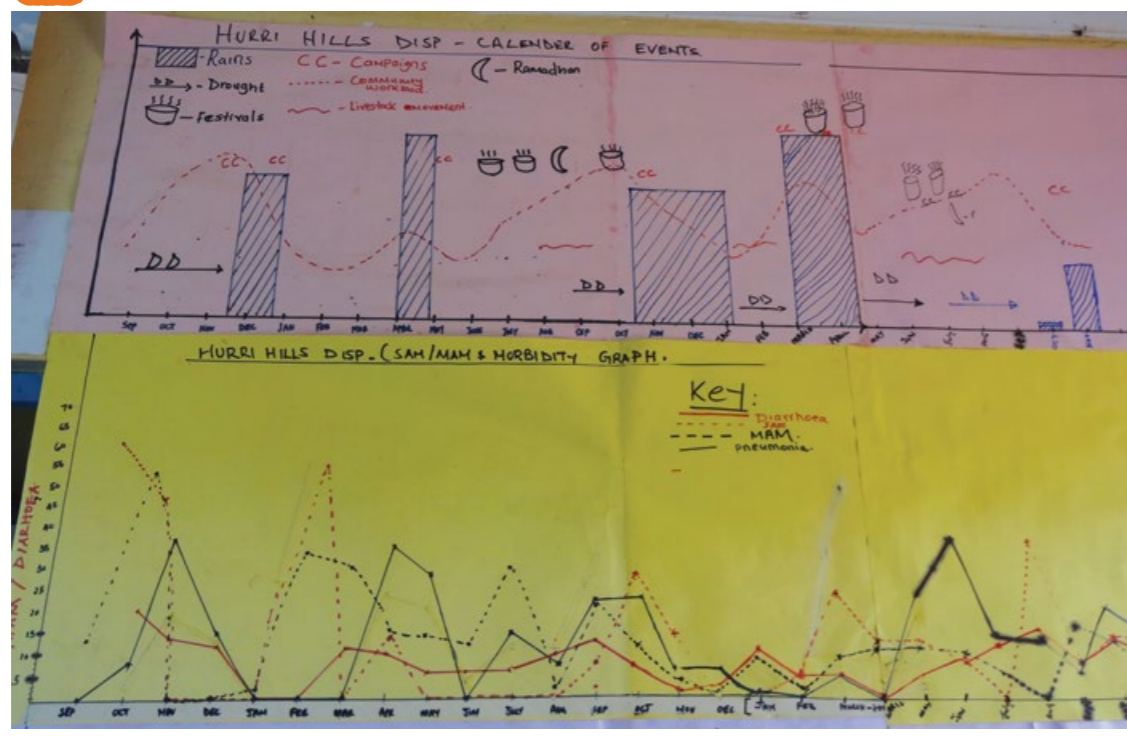 HURRI HILLS DISP - CALENDER OF EVENTS
- Rains CC - Campaigns - Ramadhan
DD - Drought - Community workload
- Festivals - Livestock movement
CC CC CC CC CC CC CC
DD DD DD DD DD
SEP OCT NOV DEC JAN FEB MAR APRL MAY JUNE JULY AUG SEP OCT NOV DEC JAN FEB MARCH APRIL MAY JUN
HURRI HILLS DISP. (SAM/MAM & MORBIDITY GRAPH.
Key:
Diarrhoea
SAM
MAM.
pneumonia
70
65
55
50
45
40
35
30
25
20
15
10
5
/ DIARHOEA
SEP OCT NOV DEC JAN FEB MAR APR MAY JUN JULY AUG SEP OCT NOV DEC JAN FEB